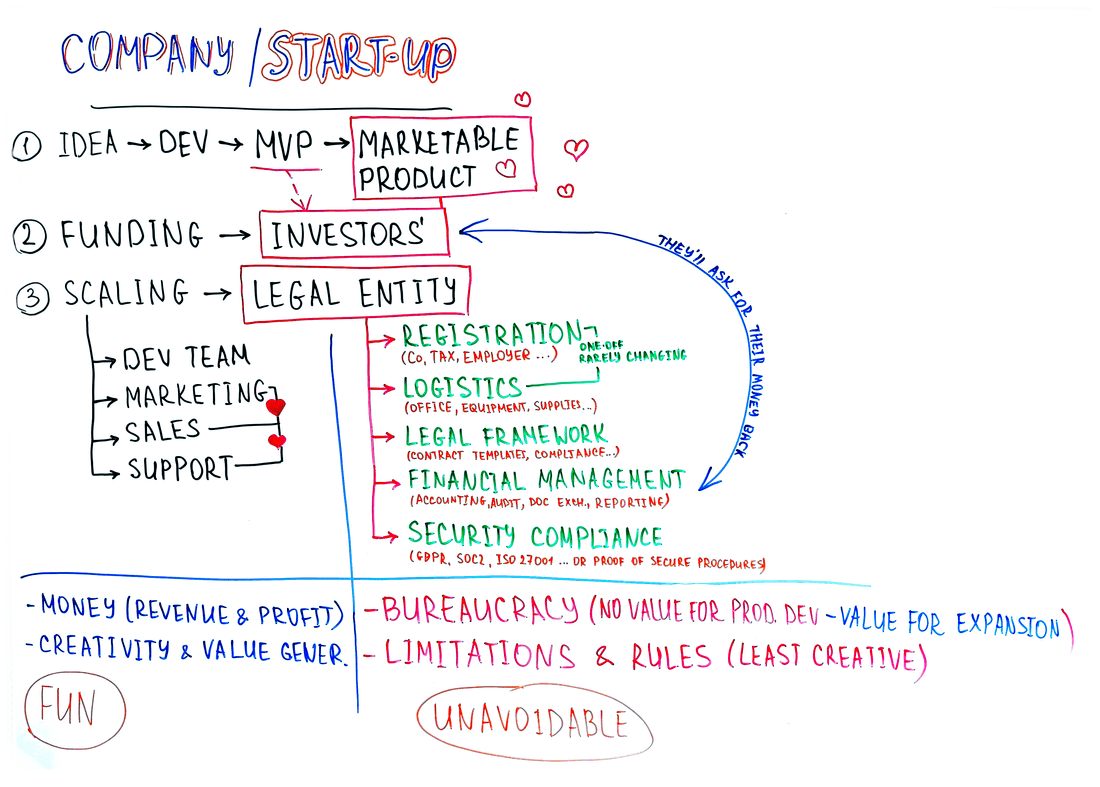 COMPANY / START-UP
① IDEA → DEV → MVP → MARKETABLE
PRODUCT
② FUNDING → INVESTORS'
THEY'll ASK FOR THEIR MONEY BACK
③ SCALING → LEGAL ENTITY
DEV TEAM
MARKETING
SALES
SUPPORT
REGISTRATION
(CO, TAX, EMPLOYER ...)
ONE-OFF
RARELY CHANGING
LOGISTICS
(OFFICE, EQUIPMENT, SUPPLIES...)
LEGAL FRAMEWORK
(CONTRACT TEMPLATES, COMPLIANCE...)
FINANCIAL MANAGEMENT
(ACCOUNTING, AUDIT, DOC EXCH., REPORTING)
SECURITY COMPLIANCE
(GDPR, SOC2, ISO 27001 ... OR PROOF OF SECURE PROCEDURES)
- MONEY (REVENUE & PROFIT)
- CREATIVITY & VALUE GENER.
FUN
- BUREAUCRACY (NO VALUE FOR PROD. DEV - VALUE FOR EXPANSION)
- LIMITATIONS & RULES (LEAST CREATIVE)
UNAVOIDABLE